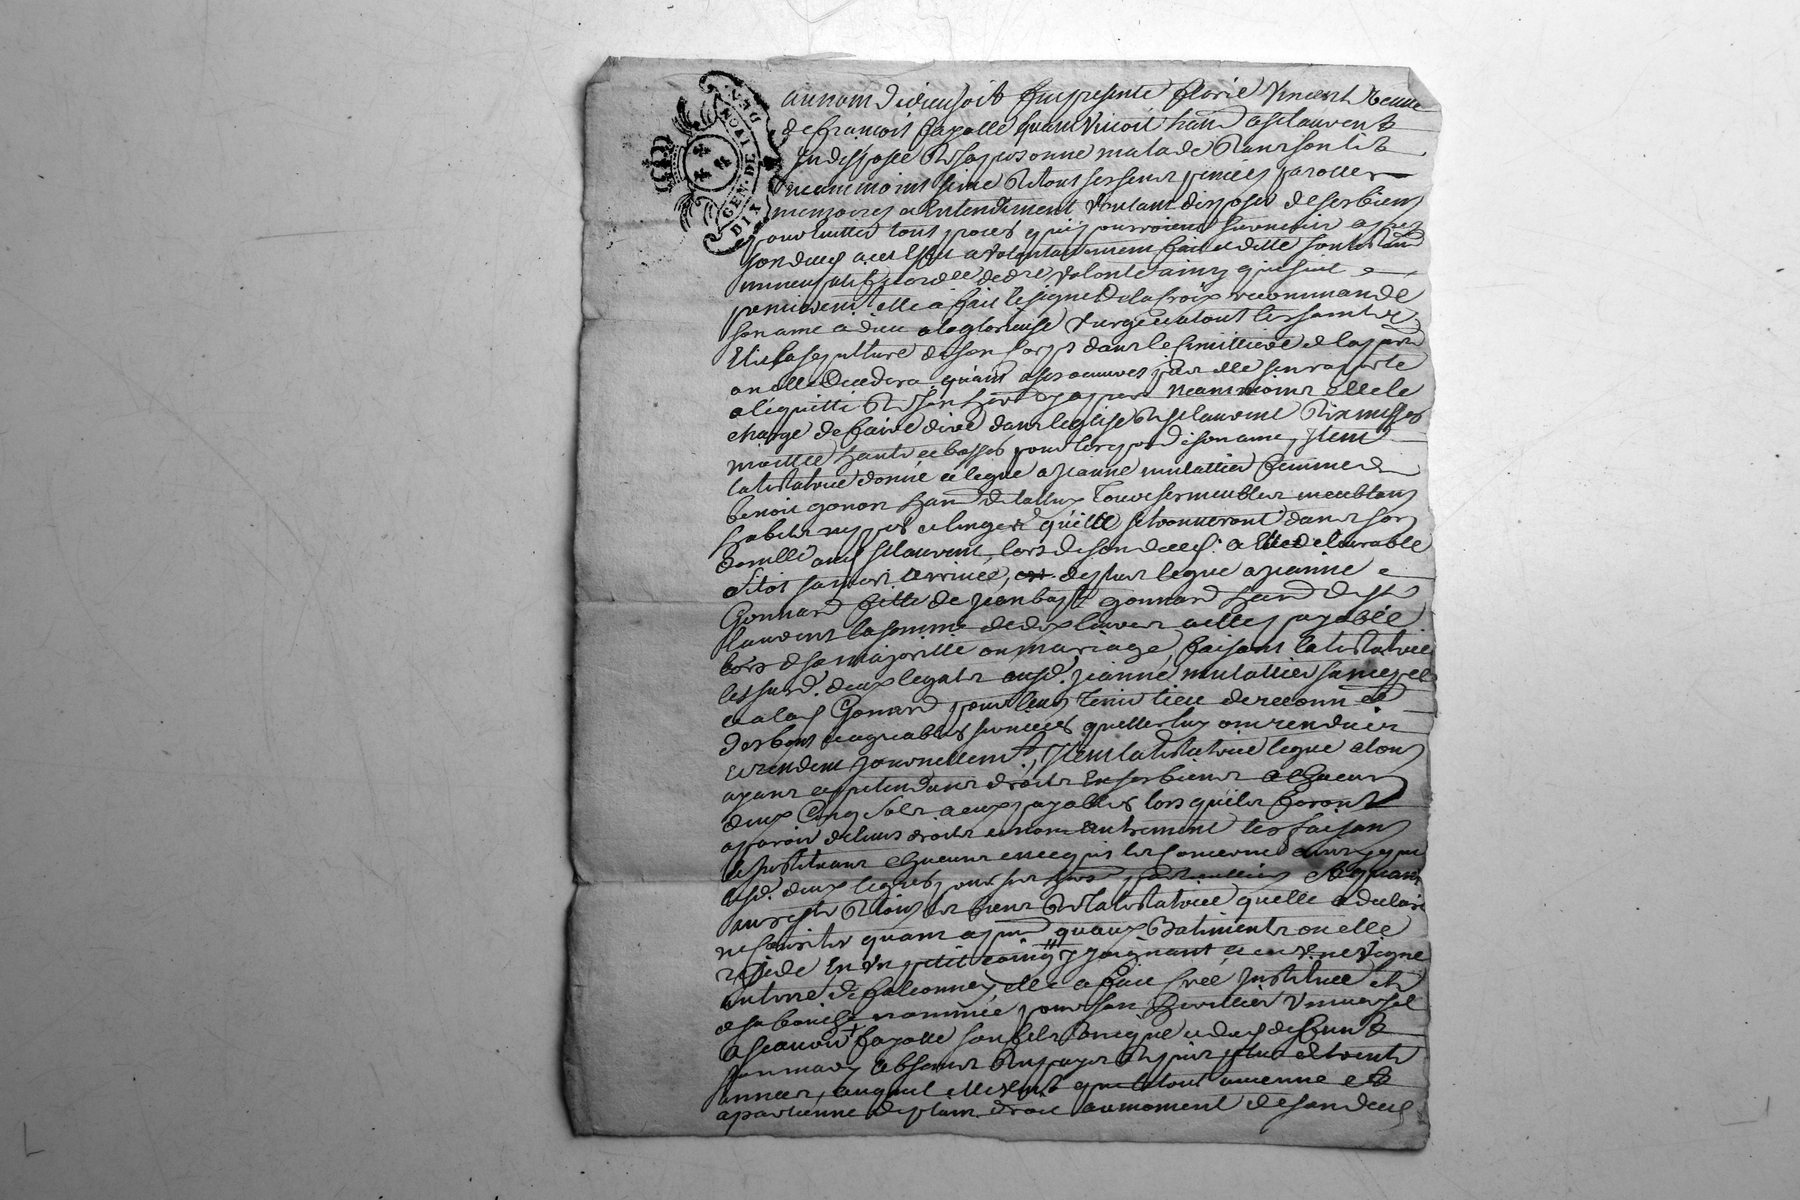 GEN. DE LYON
DIX DEN
au nom de dieu soit fut presente florie Vincent veuve
de francois fayolle quand vivoit hant a st laurent
Indisposée de sa personne malade dans son lit
neanmoins saine de tous ses sens pensées parolles
memoires et Entendement Voulant disposer de ses biens
pour Eviter tous proces qui pourroient survenir apres
son deces a cet effet a volontairement fait et dicté son testament
nuncupatif et ordce de dre volonté ainsy que suit
premierement elle a fait le signe de la croix recommandé
son ame a dieu a la glorieuse vierge et a tous les saints
Elu la sepulture de son corps dans le cimittiere de la parr
ou elle decedera quant a ses oeuvres pies elle s'en raporte
a l'equitté de son her neanmoins elle le
charge de faire dire dans l'eglise de st laurent dix messes
moittié hautes et basses pour le repos de son ame, Item
la testatrice donne et legue a jeanne mulattier femme de
benoit gonon hant de tous ses meubles meublans
habits nippes et linges qu'elle se trouveront dans son
domicille aud st laurent, lors de son deces. a
sitot sa mort arrivée, de plus legue a jeanne
Gonnard fille de jean bapte gonnard hant de st
laurent la somme de dix livres a elle payable
lors de sa majorité ou mariage, faisant la testatrice
les surd. deux legats aud. jeanne mulattier sa niepce
et a lad Gonard pour leur tenir lieu de reconn
des bons et agreables services qu'elles luy ont rendu et
et rendent journellemt, Item la testatrice legue a tous
ayans et pretendans droits En ses biens a chacun
deux Cinq sols a eux payables lors qu'ils feront
aparoir de leurs droits et non autrement les faisant
et instituant chacun en ce qui les concerne
deux legues pour ses hers particulliers Et quant
au reste de tous les biens de la testatrice qu'elle a declaré
ne consister quant a pnt qu'aux Batiments ou elle
reside En un petit joignant et en une vigne
au terre de falconnet, elle a fait creé Institué et
de sa bouche nommée pour son heritier universel
a scavoir fayolle son fils unique et dud deffunt
son mary absent du pays depuis plus de trente
années, auquel elle veut que le tout avienne et
apartienne de plein droit au moment de son deces